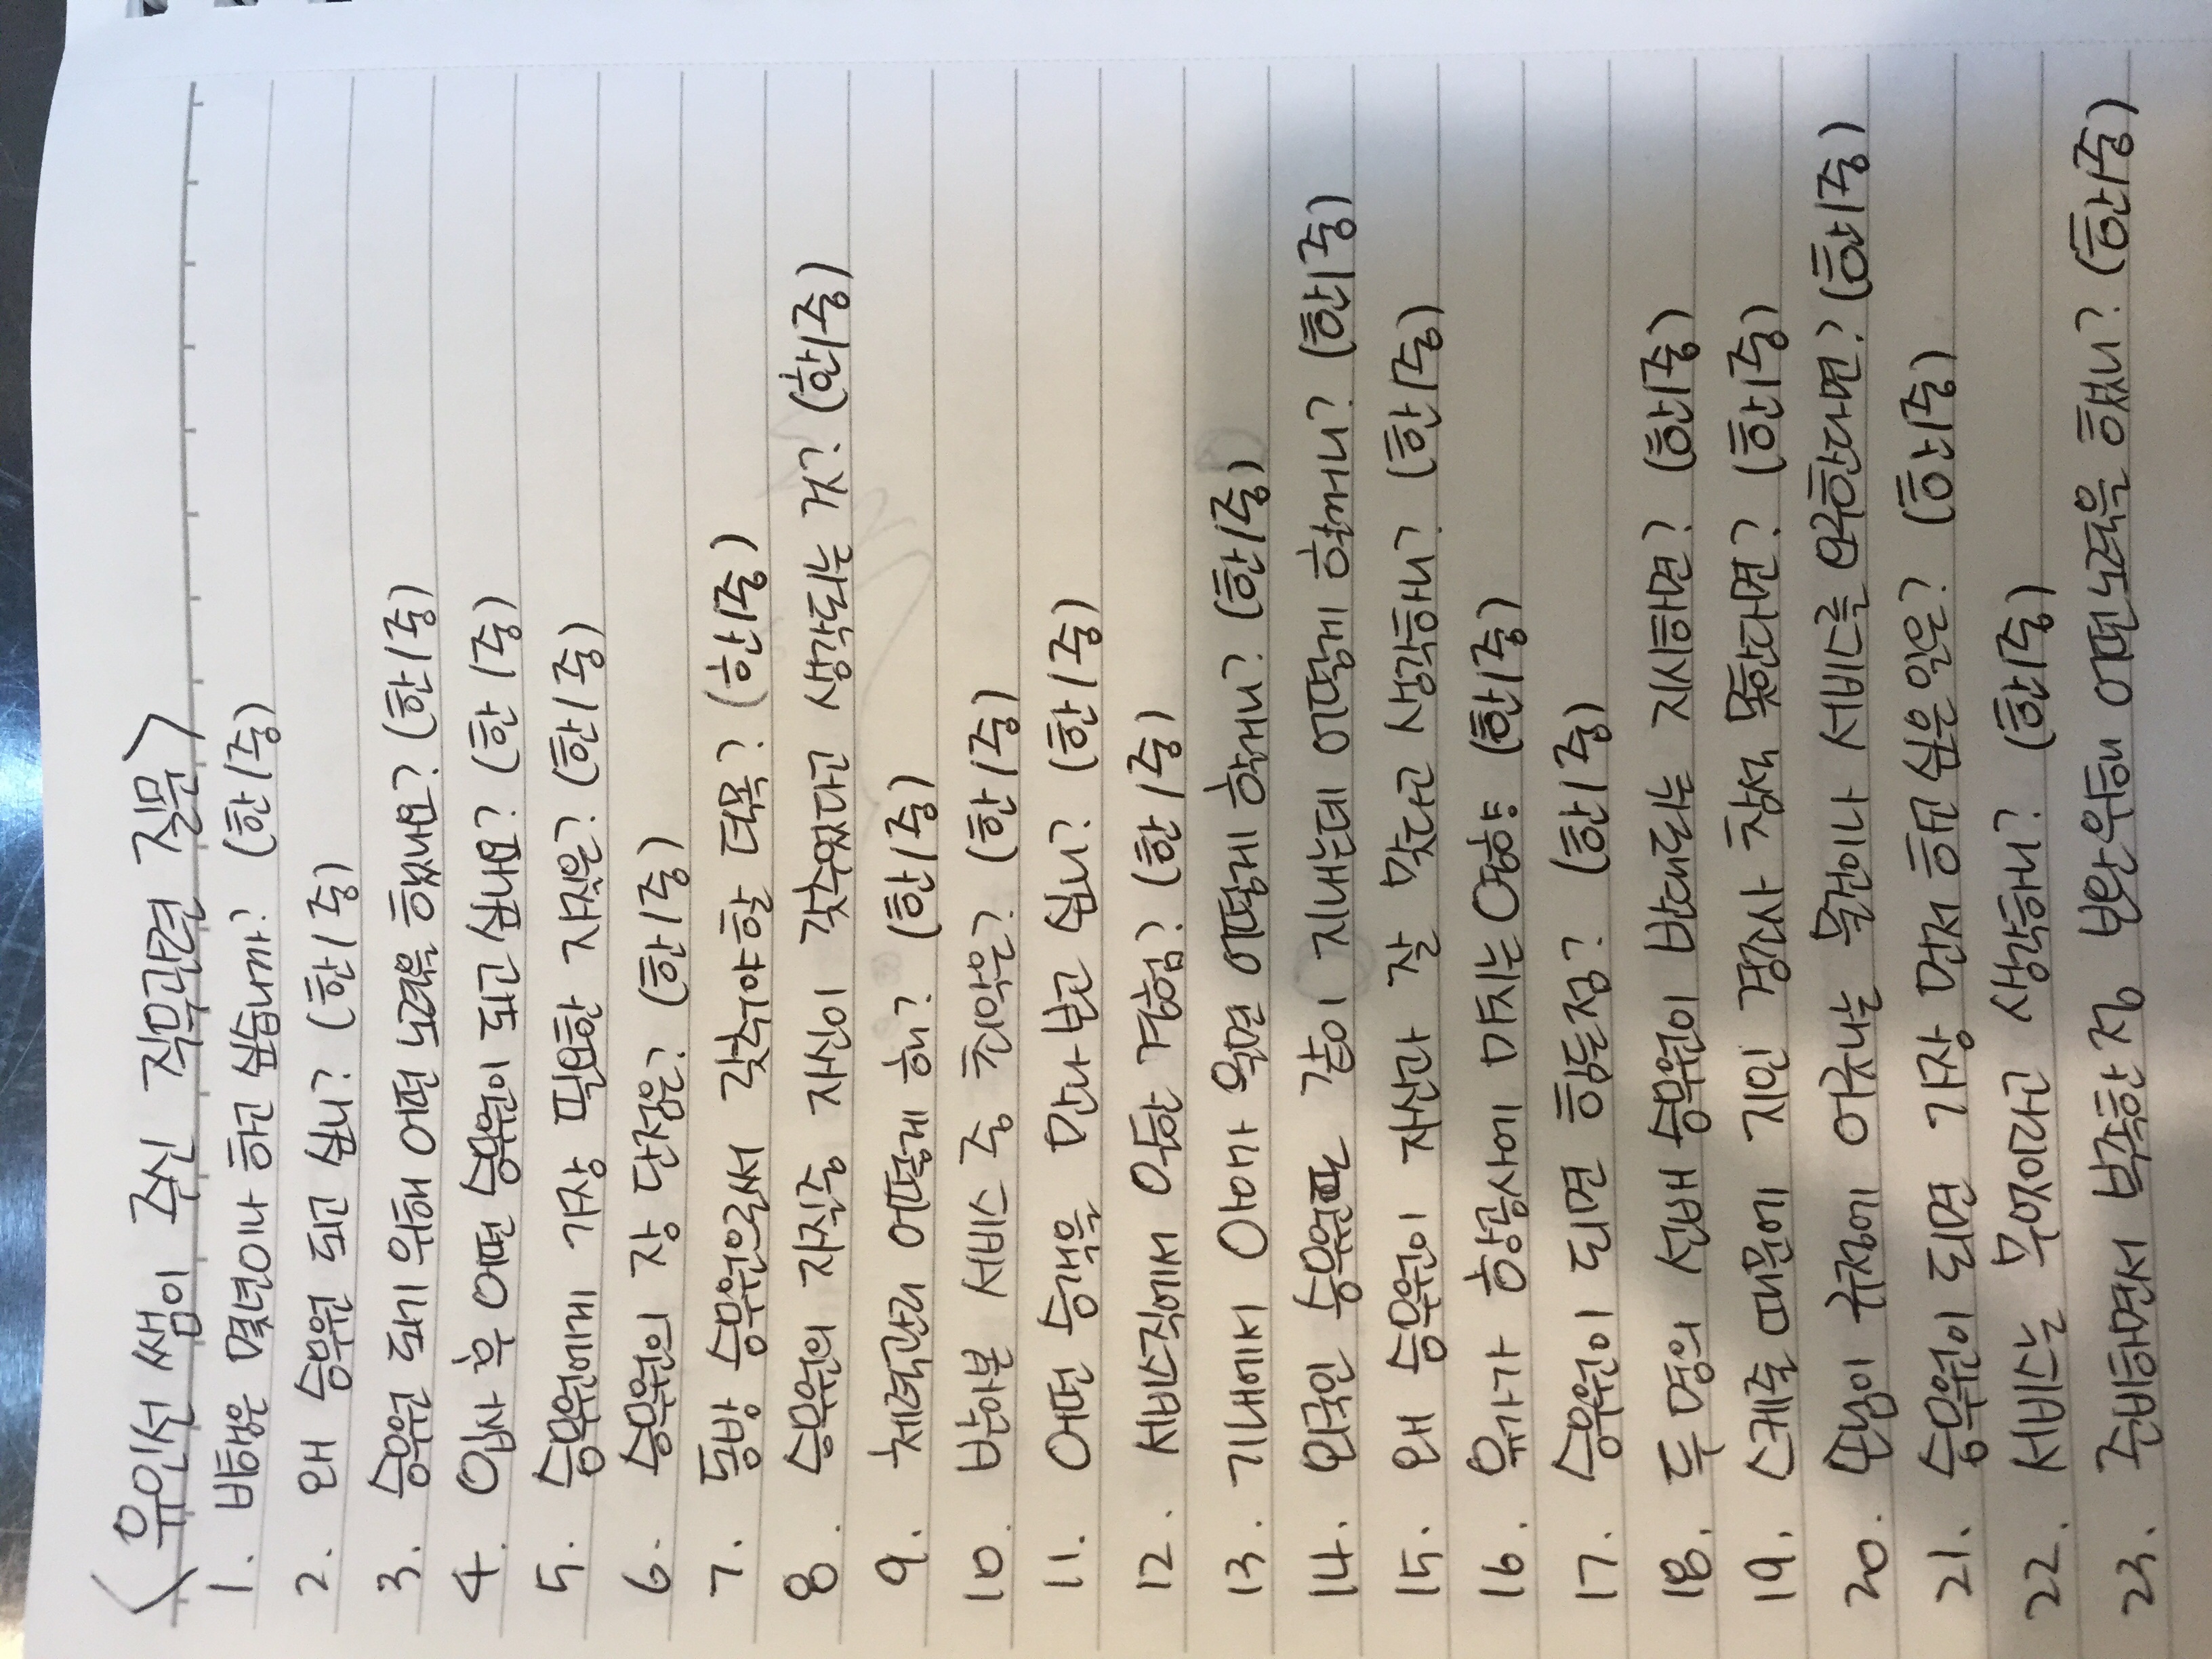 <유인선 쌤이 주신 직무관련 질문>
1. 비행은 몇년이나 하고 싶습니까? (한/중)
2. 왜 승무원 되고 싶니? (한/중)
3. 승무원 되기 위해 어떤 노력을 했나요? (한/중)
4. 입사 후 어떤 승무원이 되고 싶나요? (한/중)
5. 승무원에게 가장 필요한 자질은? (한/중)
6. 승무원의 장 단점은? (한/중)
7. 동방 승무원으로써 갖춰야할 덕목? (한/중)
8. 승무원의 자질중 자신이 갖추었다고 생각되는 것? (한/중)
9. 체력관리 어떻게 해? (한/중)
10. 받아본 서비스 중 최악은? (한/중)
11. 어떤 승객을 만나보고 싶니? (한/중)
12. 서비스직에서 우수한 경험? (한/중)
13. 기내에서 아이가 울면 어떻게 할거니? (한/중)
14. 외국인 승무원과 같이 지내는데 어떻게 할꺼니? (한/중)
15. 왜 승무원이 자신과 잘 맞다고 생각하니? (한/중)
16. 유가가 항공사에 미치는 영향 (한/중)
17. 승무원이 되면 힘든점? (한/중)
18. 두 명의 선배 승무원이 반대되는 지시하면? (한/중)
19. 스케줄 때문에 지인 경조사 참석 못한다면? (한/중)
20. 손님이 규정에 어긋나는 물건이나 서비스를 요구한다면? (한/중)
21. 승무원이 되면 가장 먼저 하고 싶은 일은? (한/중)
22. 서비스는 무엇이라고 생각하니? (한/중)
23. 준비하면서 부족한 점 보완위해 어떤 노력을 했니? (한/중)